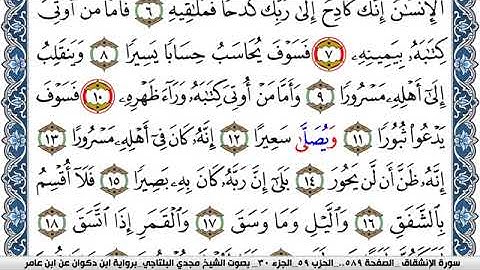 ٱلْإِنسَٰنُ إِنَّكَ كَادِحٌ إِلَىٰ رَبِّكَ كَدْحًا فَمُلَٰقِيهِ ٦ فَأَمَّا مَنْ أُوتِىَ
كِتَٰبَهُۥ بِيَمِينِهِۦ ٧ فَسَوْفَ يُحَاسَبُ حِسَابًا يَسِيرًا ٨ وَيَنقَلِبُ
إِلَىٰٓ أَهْلِهِۦ مَسْرُورًا ٩ وَأَمَّا مَنْ أُوتِىَ كِتَٰبَهُۥ وَرَآءَ ظَهْرِهِۦ ١٠ فَسَوْفَ
يَدْعُوا۟ ثُبُورًا ١١ وَيُصَلَّىٰ سَعِيرًا ١٢ إِنَّهُۥ كَانَ فِىٓ أَهْلِهِۦ مَسْرُورًا ١٣
إِنَّهُۥ ظَنَّ أَن لَّن يَحُورَ ١٤ بَلَىٰٓ إِنَّ رَبَّهُۥ كَانَ بِهِۦ بَصِيرًا ١٥ فَلَآ أُقْسِمُ
بِٱلشَّفَقِ ١٦ وَٱلَّيْلِ وَمَا وَسَقَ ١٧ وَٱلْقَمَرِ إِذَا ٱتَّسَقَ ١٨
سورة الإنشقاق_ الصفحة ٥٨٩_ الحزب ٥٩_ الجزء ٣٠_ بصوت الشيخ مجدي البلتاجي_ برواية ابن ذكوان عن ابن عامر